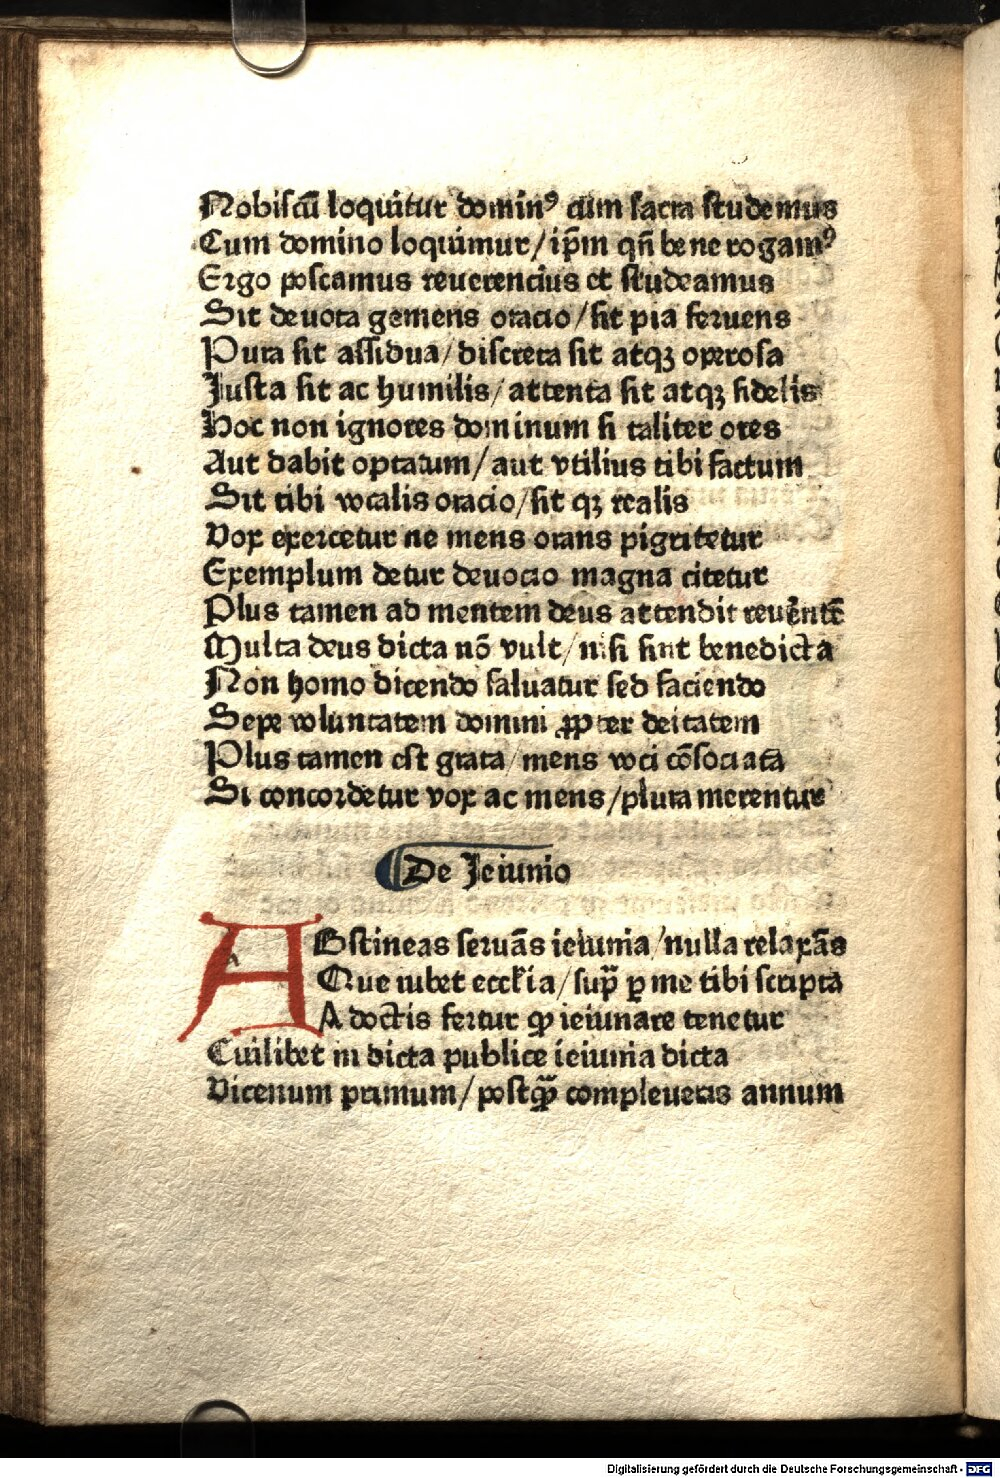 Nobiſcū loquitur dominꝰ cum ſacra ſtudemus
Cum domino loquimur/ip̄m qn̄ bene rogamꝰ
Ergo poſcamus reuerencius et ſtudeamus
Sit deuota gemens oracio/ſit pia feruens
Pura ſit aſſidua/diſcreta ſit atqꝫ operoſa
Iuſta ſit ac humilis/attenta ſit atqꝫ fidelis
Hoc non ignores dominum ſi taliter ores
Aut dabit optatum/aut vtilius tibi factum
Sit tibi vocalis oracio/ſit qꝫ realis
Vox exercetur ne mens orans pigritetur
Exemplum detur deuocio magna citetur
Plus tamen ad mentem deus attendit reuerēntē
Multa deus dicta nō vult/niſi ſint benedicta
Non homo dicendo ſaluatur ſed faciendo
Sepe voluntatem domini ꝓpter deitatem
Plus tamen eſt grata/mens voci cōſociata
Si concordetur vox ac mens/plura merentur
De Ieiunio
ABſtineas ſeruās ieiunia/nulla relaxās
Que iubet eccłia/ſup̄ ꝑ me tibi ſcripta
A doctis fertur ꝙ ieiunare tenetur
Cuilibet in dicta publice ieiunia dicta
Vicenum primum/poſtꝙ̄ compleueris annum
Digitalisierung gefördert durch die Deutsche Forschungsgemeinschaft - DFG